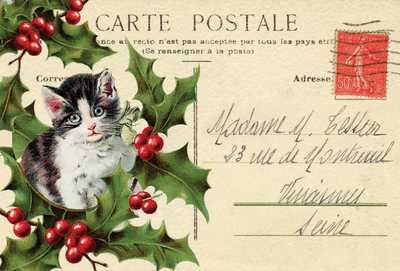 CARTE POSTALE
ance au recto n'est pas acceptée par tous les pays étr
(Se renseigner à la poste)
Corres
Adresse
50
Madame M. Tessier
23 rue de Montreuil
Vincennes
Seine